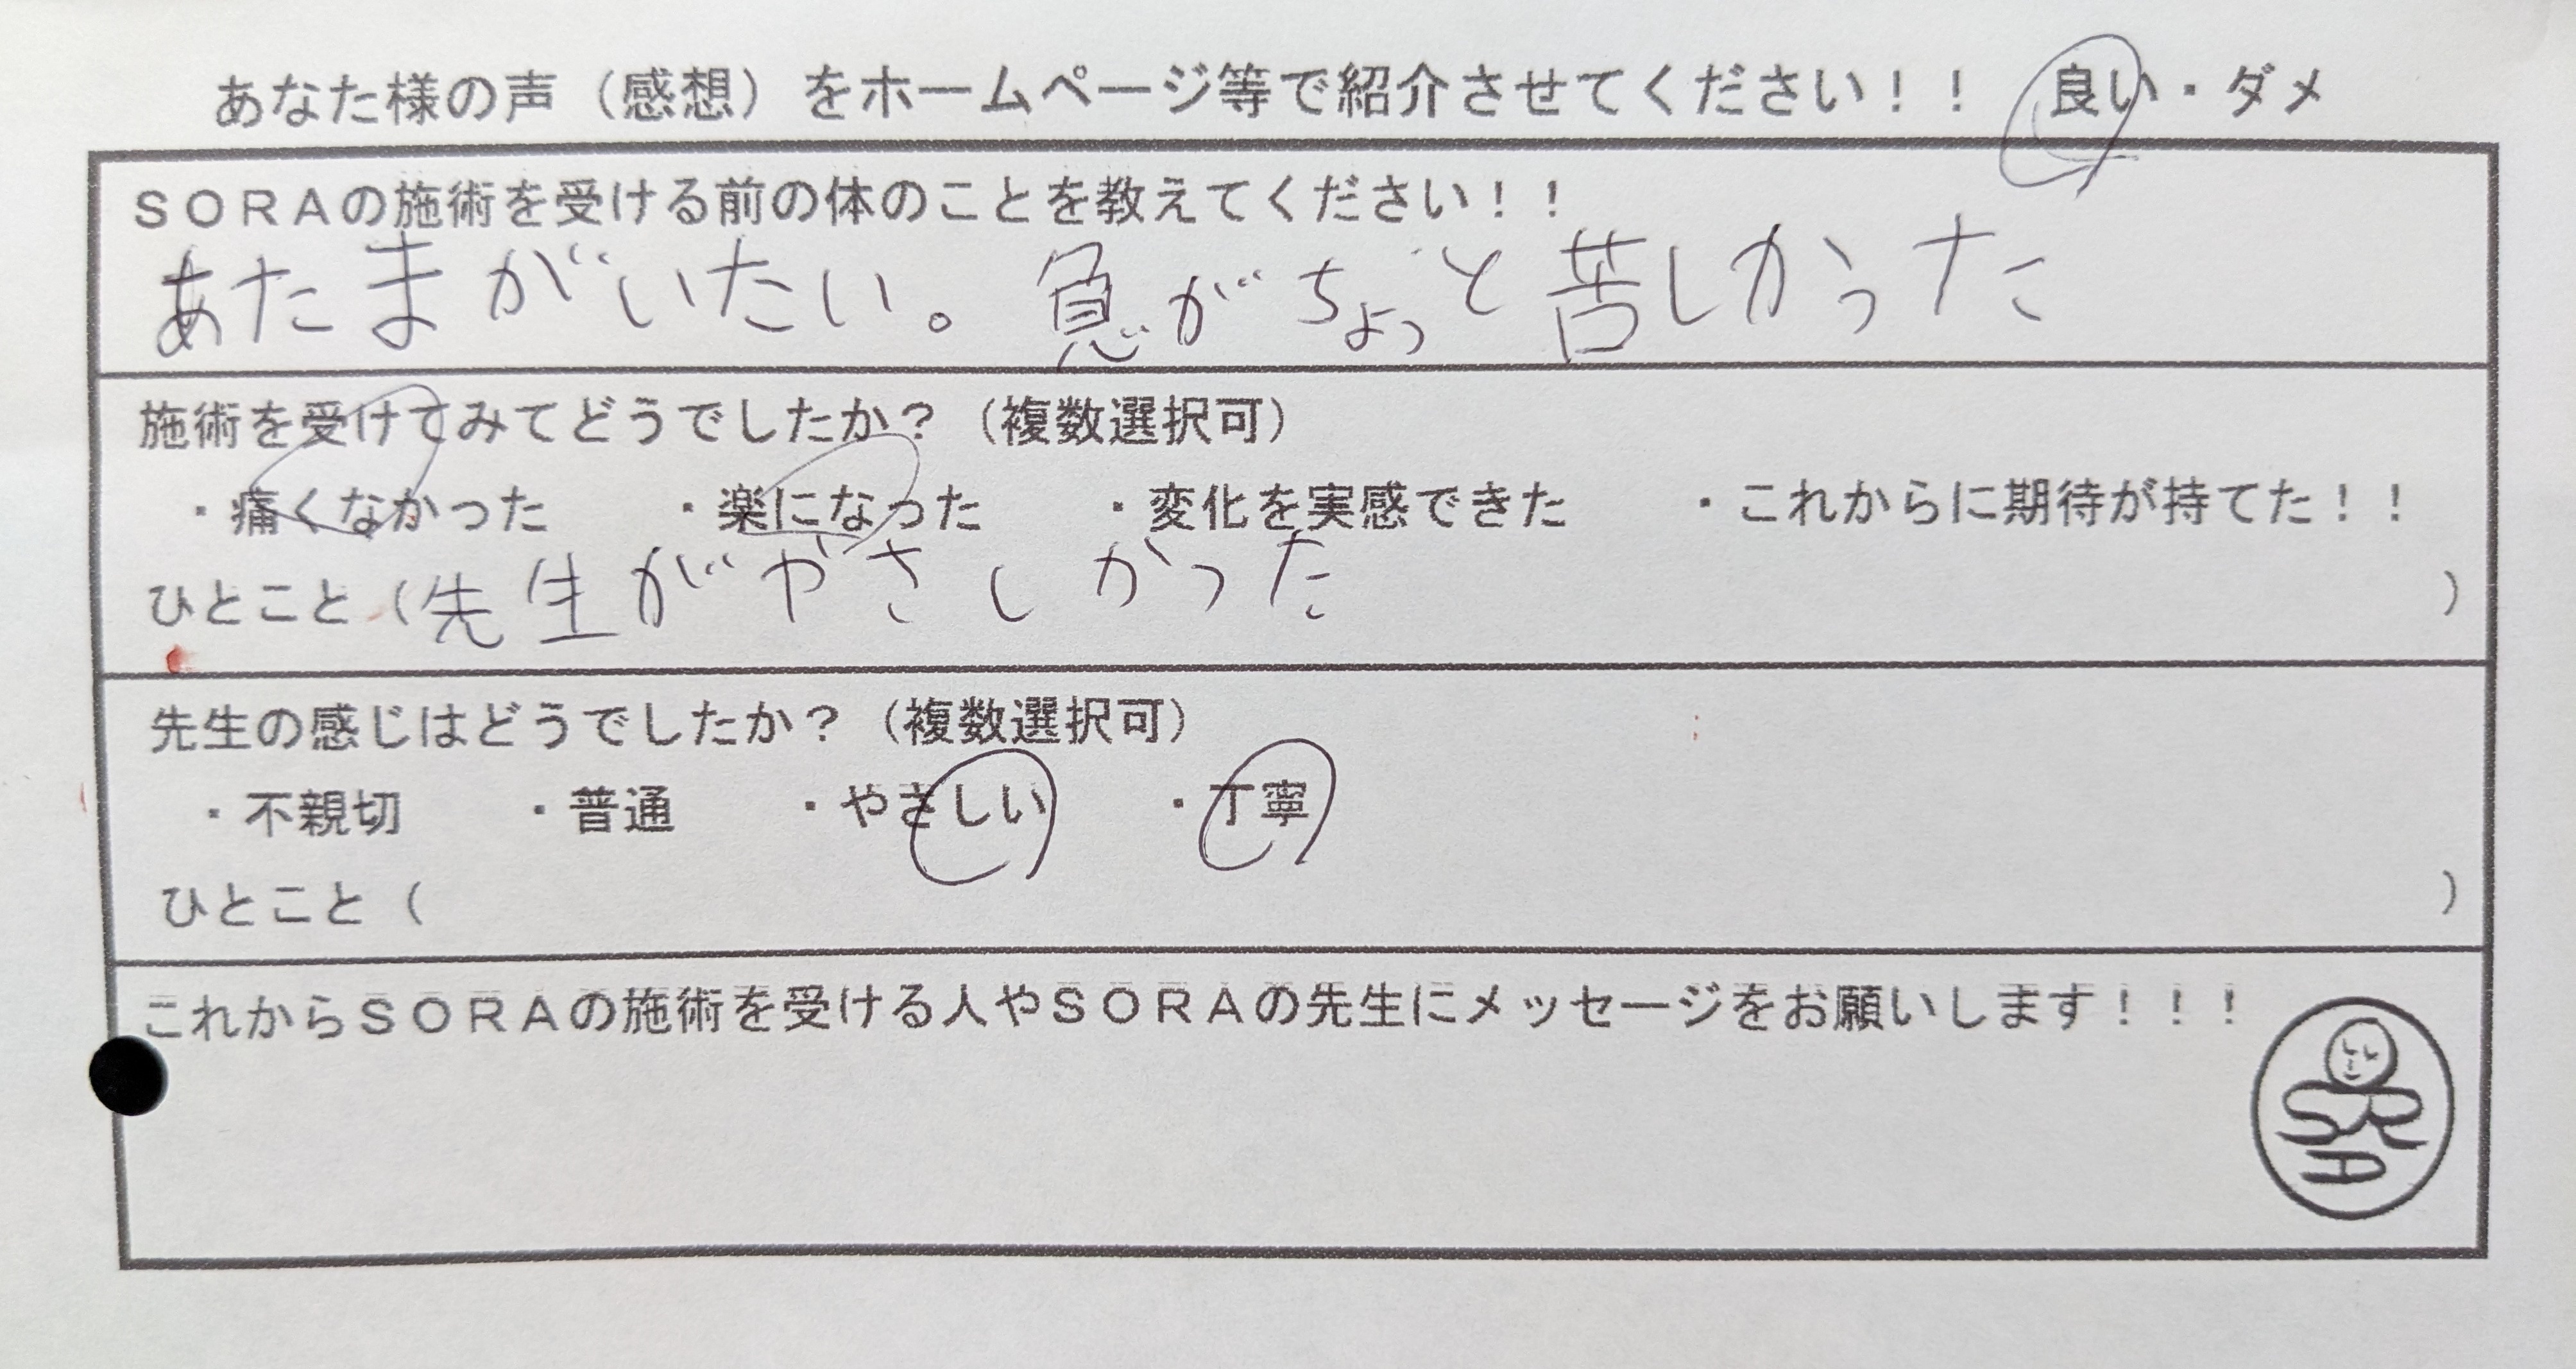 あなた様の声（感想）をホームページ等で紹介させてください！！　良い・ダメ
ＳＯＲＡの施術を受ける前の体のことを教えてください！！
あたまがいたい。息がちょっと苦しかった
施術を受けてみてどうでしたか？（複数選択可）
・痛くなかった　・楽になった　・変化を実感できた　・これからに期待が持てた！！
ひとこと（先生がやさしかった）
先生の感じはどうでしたか？（複数選択可）
・不親切　・普通　・やさしい　・丁寧
ひとこと（　）
これからＳＯＲＡの施術を受ける人やＳＯＲＡの先生にメッセージをお願いします！！！